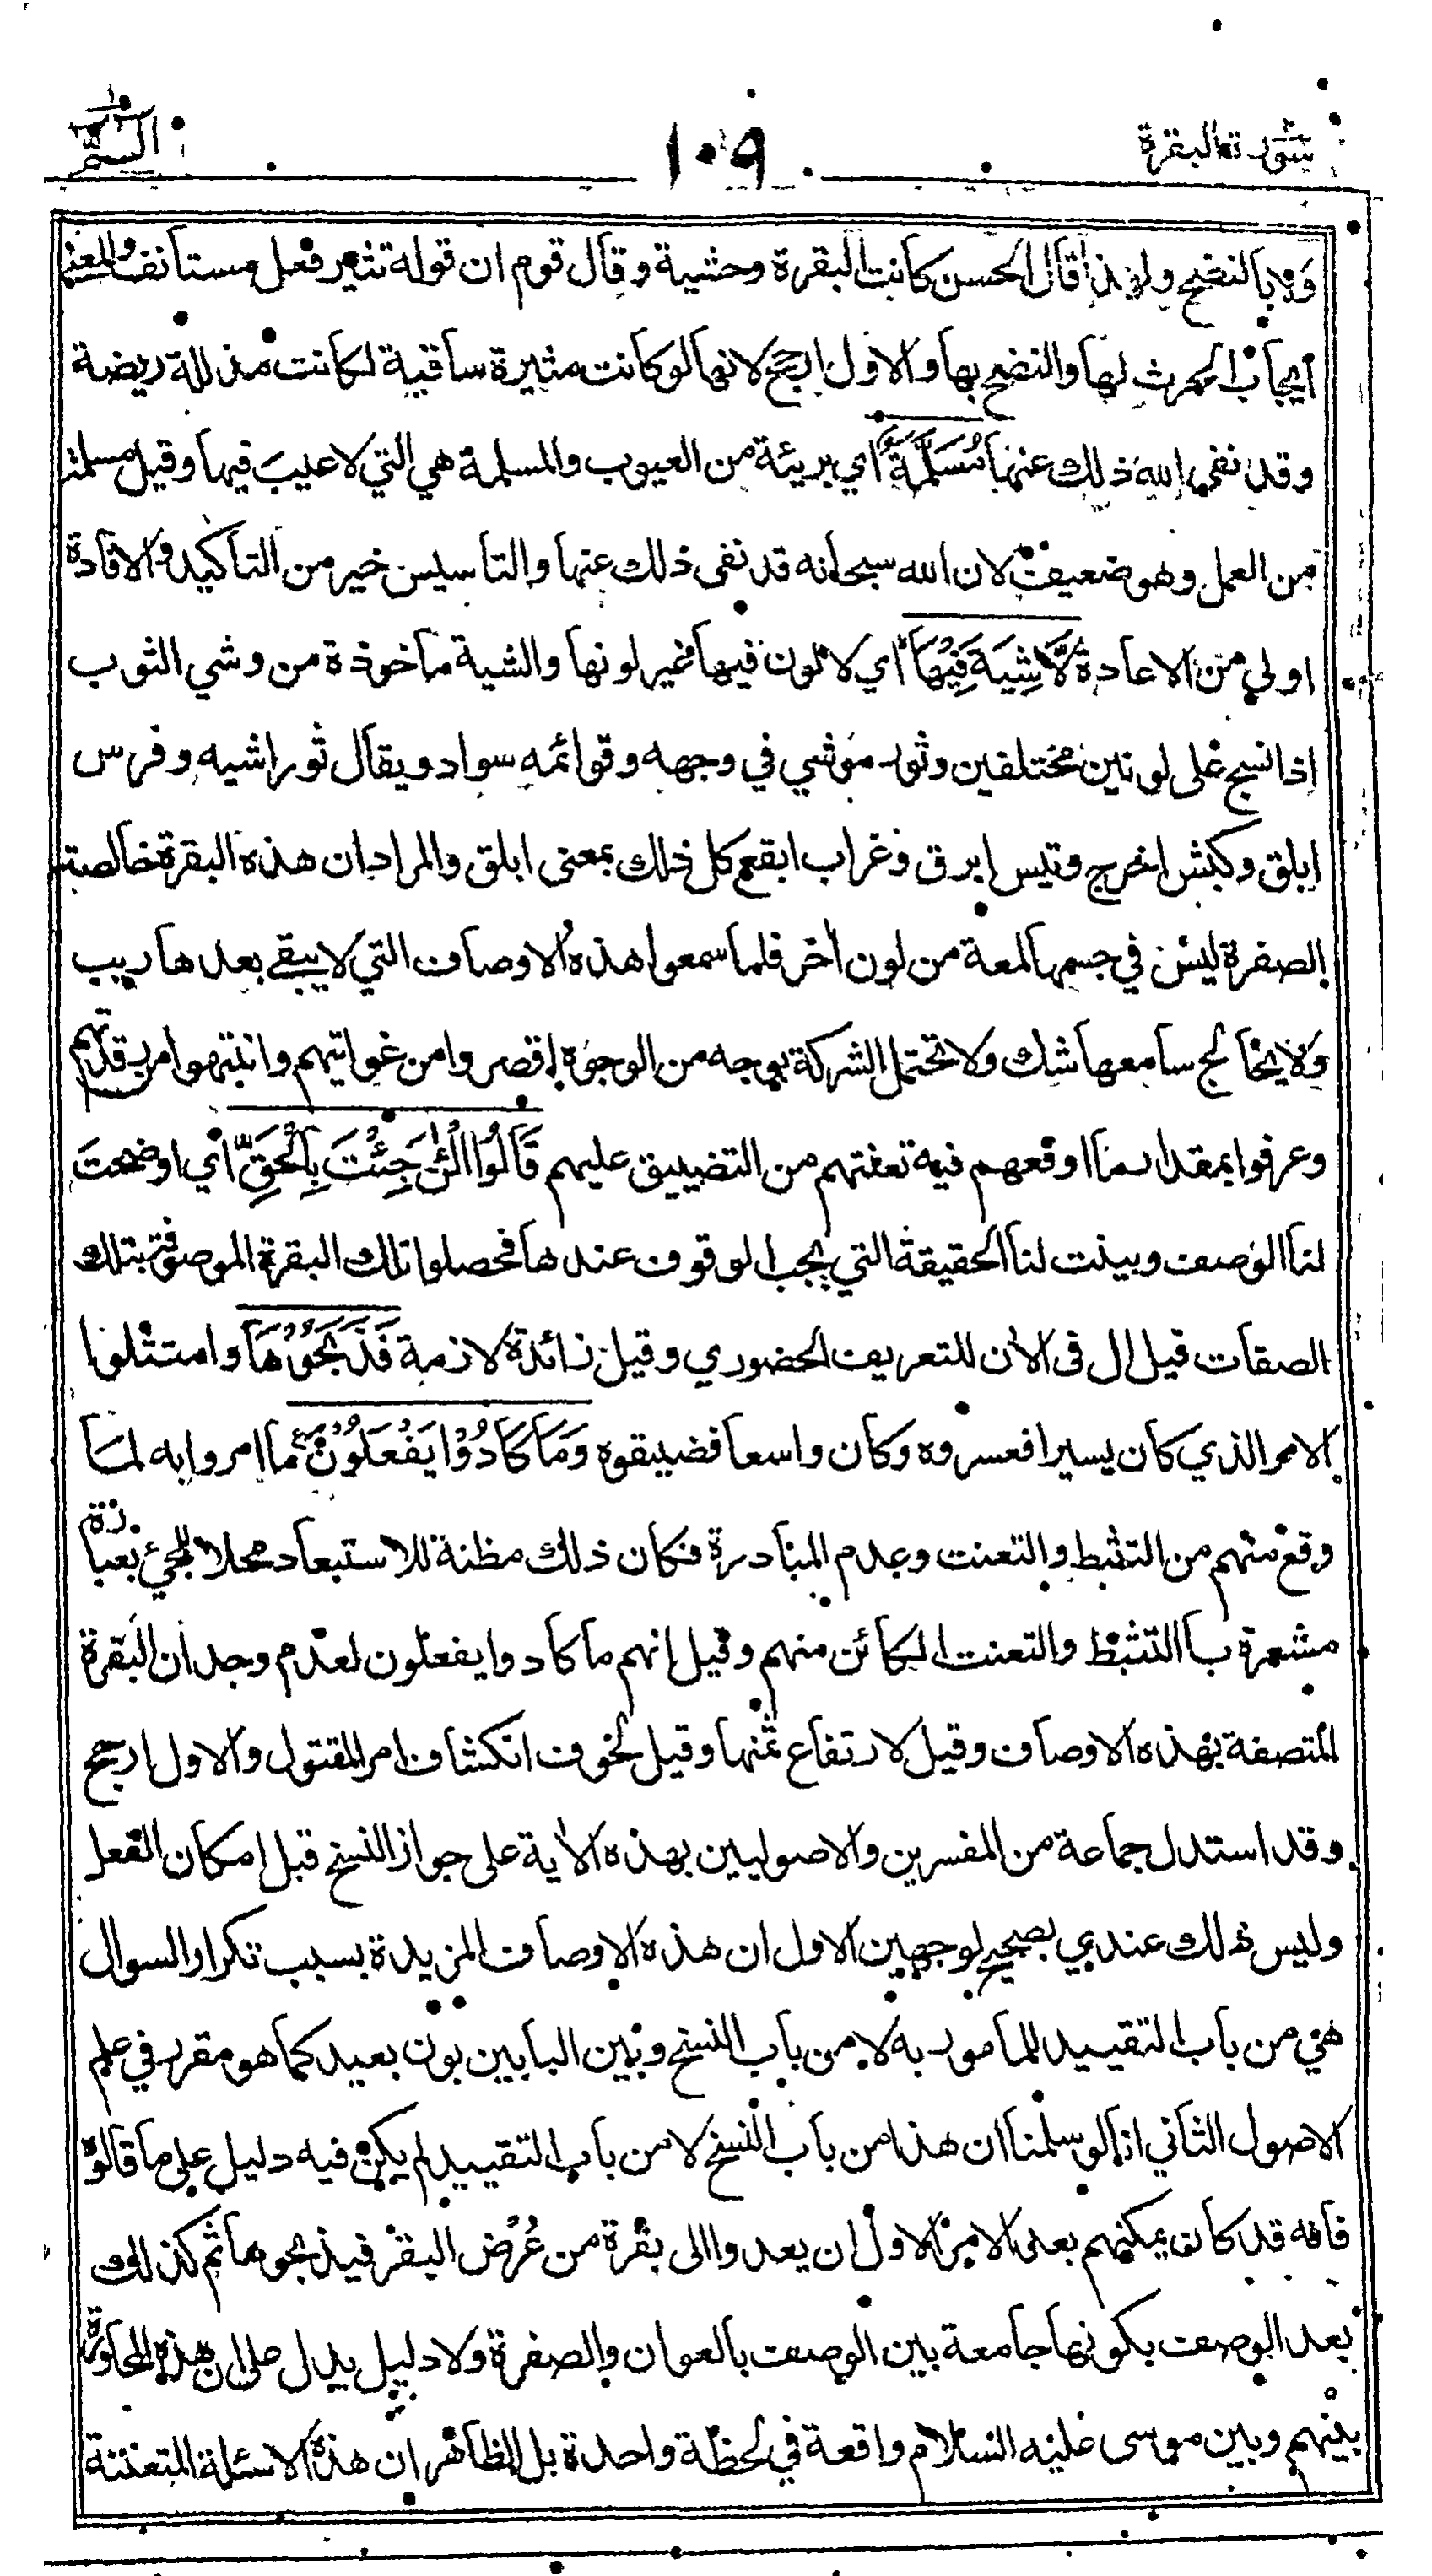 سورة البقرة
١٠٩
الٓمّ
ولا بالنضح ولهذا قال الحسن كانت البقرة وحشية وقال قوم ان قوله تثير فعل مستأنف والمعنى
ايجاب الحرث لها والنضح بها والاول ارجح لانها لو كانت مثيرة ساقية لكانت مذللة ريضة
وقد نفى الله ذلك عنها مُسَلَّمَةٌ أي بريئة من العيوب والمسلمة هي التي لا عيب فيها وقيل مسلمة
من العمل وهو ضعيف لان الله سبحانه قد نفى ذلك عنها والتأسيس خير من التأكيد والافادة
اولى من الاعادة لَّا شِيَةَ فِيْهَا أي لا لون فيها غير لونها والشية مأخوذة من وشي الثوب
اذا نسج على لونين مختلفين وثور موشي في وجهه وقوائمه سواد ويقال ثور اشيه وفرس
ابلق وكبش اخرج وتيس ابرق وغراب ابقع كل ذلك بمعنى ابلق والمراد ان هذه البقرة خالصة
الصفرة ليس في جسمها لمعة من لون أخر فلما سمعوا هذه الاوصاف التي لا يبقى بعدها ريب
ولا يخالج سامعها شك ولا تحتمل الشركة بوجه من الوجوه اقصروا من غوايتهم وانتبهوا من رقدتهم
وعرفوا بمقدار ما اوقعهم فيه تعنتهم من التضييق عليهم قَالُوا الْئٰنَ جِئْتَ بِالْحَقِّ أي اوضحت
لنا الوصف وبينت لنا الحقيقة التي يجب الوقوف عندها فحصلوا تلك البقرة الموصوفة بتلك
الصفات قيل ال في الأن للتعريف الحضوري وقيل زائدة لازمة فَذَبَحُوْهَا وامتثلوا
الامر الذي كان يسيرا فعسروه وكان واسعا فضيقوه وَمَا كَادُوْا يَفْعَلُوْنَ ما امروا به لما
وقع منهم من التثبط والتعنت وعدم المبادرة فكان ذلك مظنة للاستبعاد محلا للمجئ بعبارة
مشعرة بالتثبط والتعنت الكائن منهم وقيل انهم ما كادوا يفعلون لعدم وجدان البقرة
المتصفة بهذه الاوصاف وقيل لارتفاع ثمنها وقيل لخوف انكشاف امر المقتول والاول ارجح
وقد استدل جماعة من المفسرين والاصوليين بهذه الأية على جواز النسخ قبل امكان الفعل
وليس ذلك عندي بصحيح لوجهين الاول ان هذه الاوصاف المزيدة بسبب تكرار السوال
هي من باب التقييد للمأمور به لا من باب النسخ وبين البابين بون بعيد كما هو مقرر في علم
الاصول الثاني انا لو سلمنا ان هذا من باب النسخ لا من باب التقييد لم يكن فيه دليل على ما قالوه
فانه قد كان يمكنهم بعد الامر الاول ان يعدوا الى بقرة من عُرْض البقر فيذبحوها ثم كذلك
بعد الوصف بكونها جامعة بين الوصف بالعوان والصفرة ولا دليل يدل على ان هذه المحاورة
بينهم وبين موسى عليه السلام واقعة في لحظة واحدة بل الظاهر ان هذه الاسئلة المتعنتة